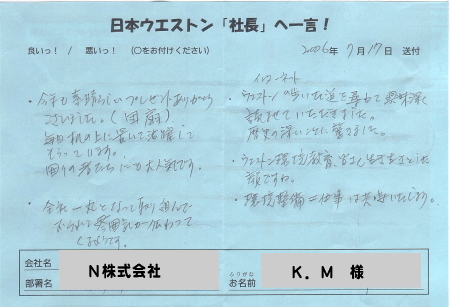 日本ウエストン「社長」へ一言！
良いっ！ / 悪いっ！ (〇をお付けください)
2006年 7月17日 送付
・今年も素晴らしいプレゼントありがとう
ございました。(団扇)
毎日机の上に置いて活躍して
もらっています。
周りの者たちにも大人気です。
・会社一丸となって取り組んで
おられる雰囲気が伝わって
くるようです。
ウエストンの歩いた道を
興味深く
読ませていただきました。
歴史の深いことに驚きました。
・ウエストン環境教育、皆さん生き生きとした
顔ですね。
・環境整備＝仕事は共感いたします。
会社名
部署名
N株式会社
ふりがな
お名前
K．M 様